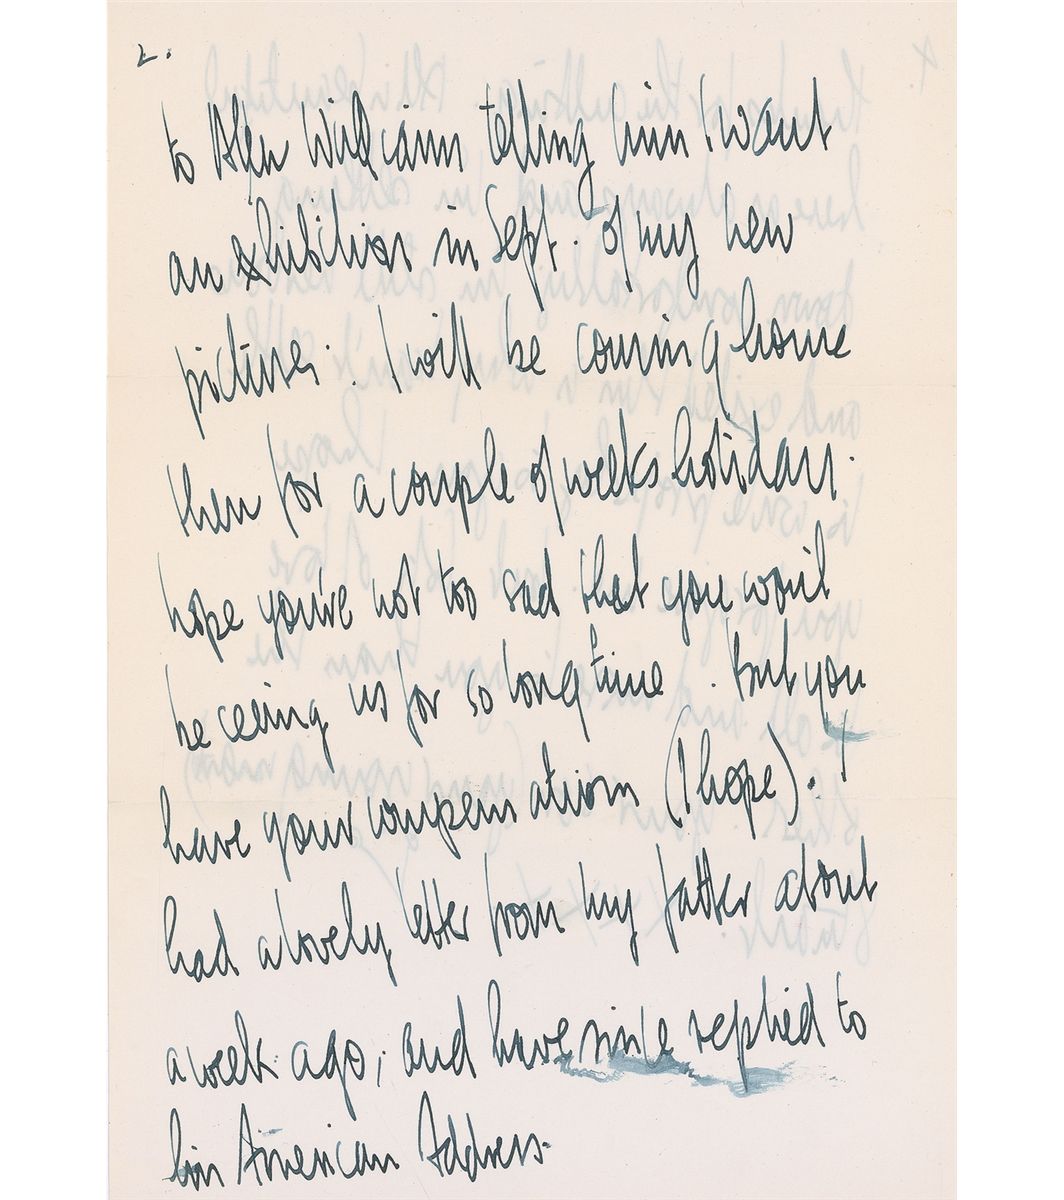 2.
to Alex Williams telling him I want
an exhibition in Sept. of my new
pictures. I will be coming home
then for a couple of weeks holiday.
hope you're not too sad that you won't
be seeing us for so long time. But you
have your compensations (I hope). I
had a lovely letter from my father about
a week ago, and have since replied to
his American Address.